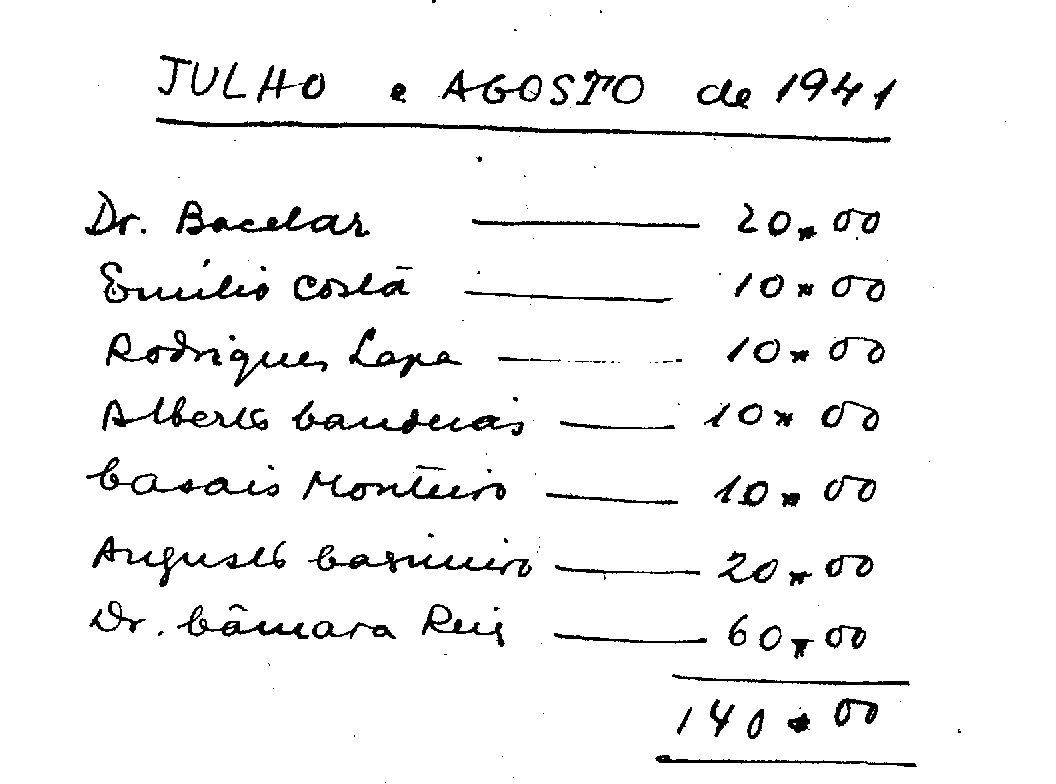 JULHO e AGOSTO de 1941
Dr. Bacelar 20.00
Emílio Costa 10.00
Rodrigues Lapa 10.00
Alberto Candeias 10.00
Casais Monteiro 10.00
Augusto Casimiro 20.00
Dr. Câmara Reis 60.00
140.00